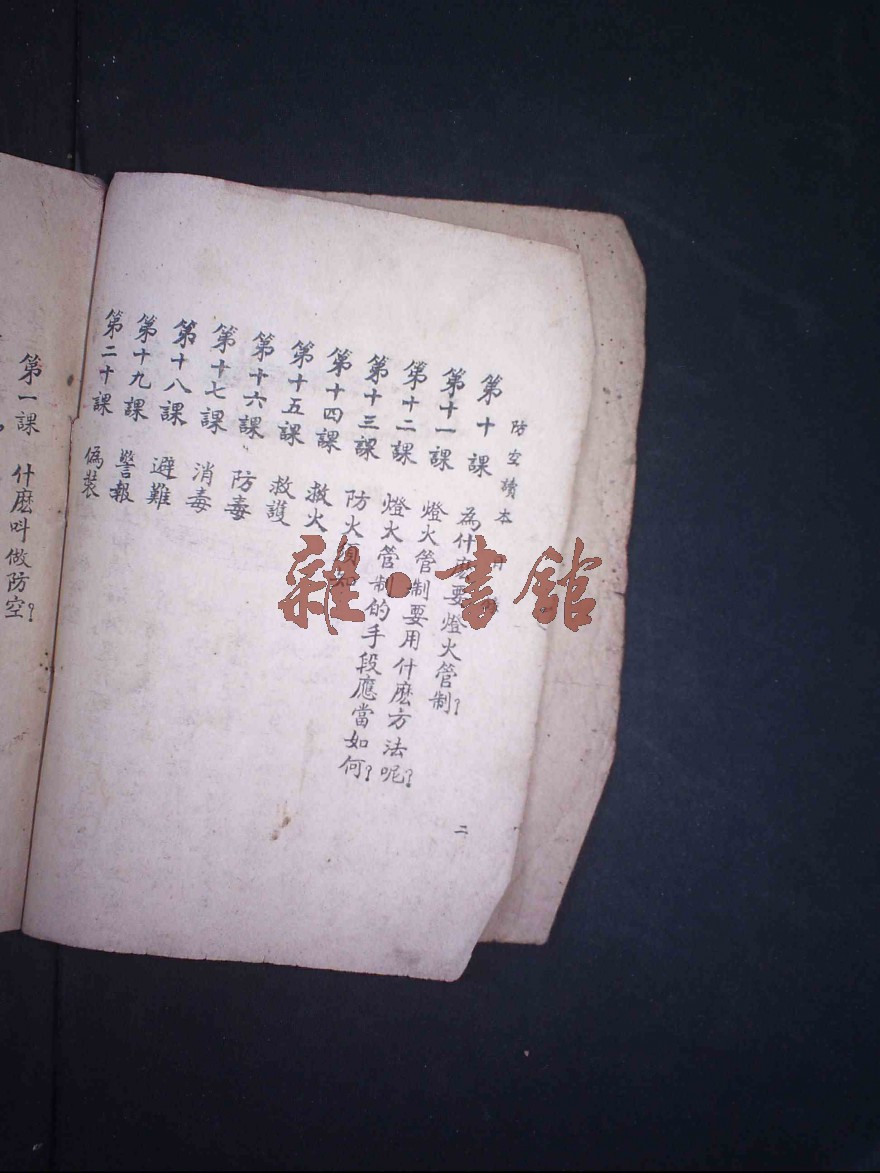 防空讀本
第十課 為什麽要燈火管制？
第十一課 燈火管制要用什麽方法呢？
第十二課 燈火管制的手段應當如何？
第十三課 防火須知
第十四課 救火
第十五課 救護
第十六課 防毒
第十七課 消毒
第十八課 避難
第十九課 警報
第二十課 偽裝
二
第一課 什麽叫做防空？
雜·書館